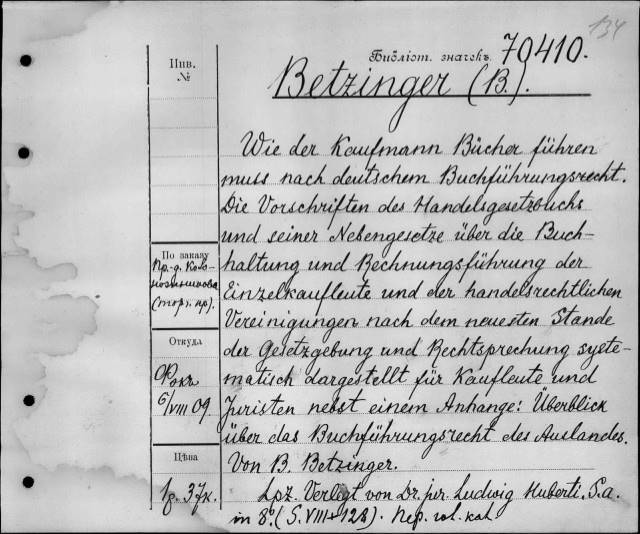 134
Библіот. значекъ 70410.
Инв.
№
Betzinger (B.).
Wie der Kaufmann Bücher führen
muss nach deutschem Buchführungsrecht.
Die Vorschriften des Handelsgesetzbuchs
und seiner Nebengesetze über die Buch-
haltung und Rechnungsführung der
Einzelkaufleute und der handelsrechtlichen
Vereinigungen nach dem neuesten Stande
der Gesetzgebung und Rechtsprechung syste-
matisch dargestellt für Kaufleute und
Juristen nebst einem Anhange: Überblick
über das Buchführungsrecht des Auslandes.
Von B. Betzinger.
Lpz. Verlegt von Dr. jur. Ludwig Huberti. S.a.
in 8°. (S. VIII+128).
По заказу
Пр.-д.
(торг. пр).
Откуда
Фокъ
6/VIII 09
Цѣна
1р. 37к.